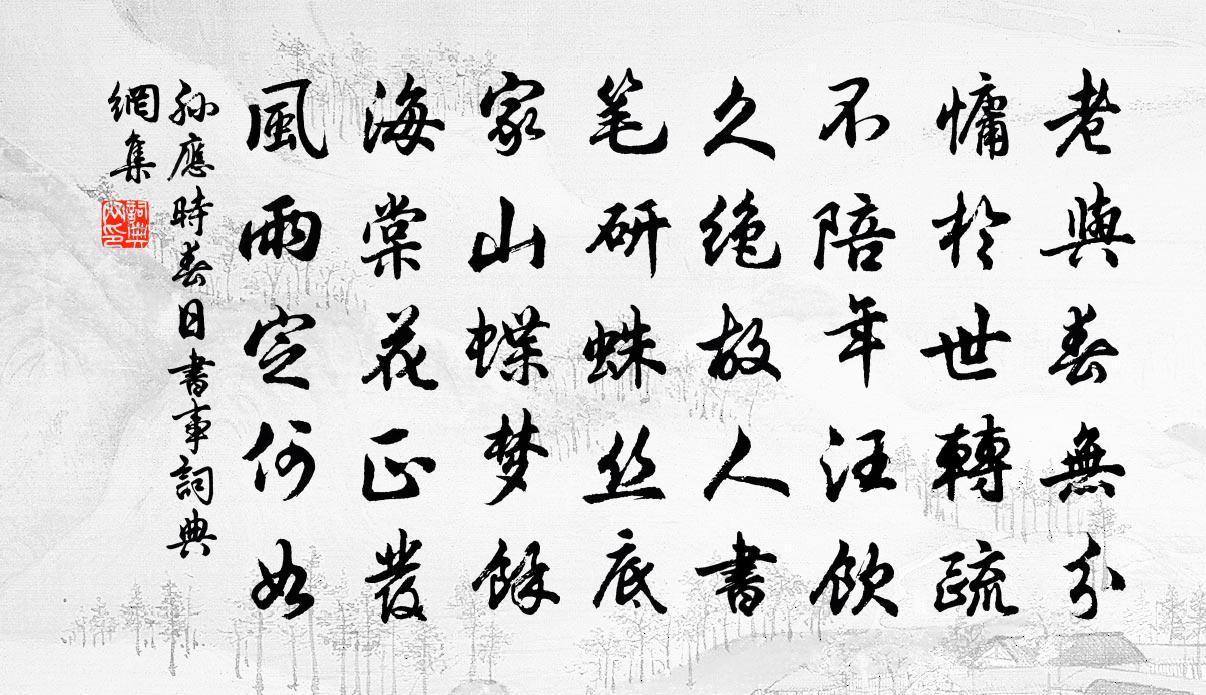 老與春無分
慵於世轉疏
不陪年汪飲
久绝故人書
笔研蛛丝底
家山蝶梦餘
海棠花正發
風雨定何如
孙應時春日書事詞典
網集
詞典網印